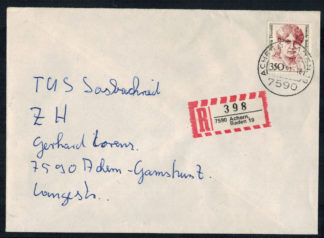 350
ACHERN
7590
R
398
7590 Achern,
Baden 19
TUS Sasbachried
Z H
Gerhard Lorenz
7590 Achern-Gamshurst
Langestr.